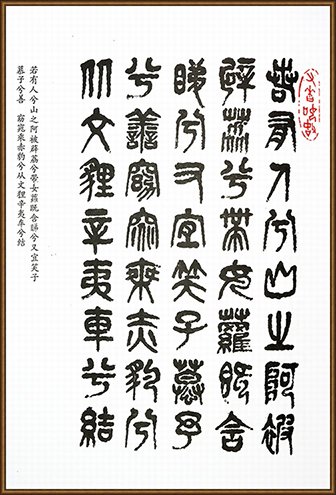 若有人兮山之阿被
薜荔兮帶女蘿既含
睇兮又宜笑子慕予
兮善窈窕乘赤豹兮
从文貍辛夷車兮結
若有人兮山之阿被薜荔兮带女蘿既含睇兮又宜笑子
墓子兮善 窈窕乘赤豹兮从文狸辛夷车兮结